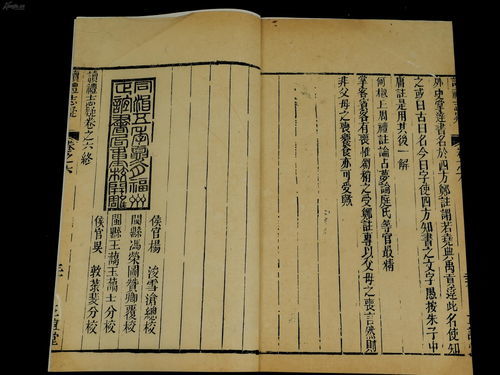 外史掌達書名於四方鄭註謂若堯典禹貢達此名使知
之或曰古曰名今曰字使四方知書之文字愚按朱子中
庸註是用其後一解
何椒丘周禮註論占夢論庭氏等官最精
掌客賓客有喪惟芻稍之受鄭註專以父母之喪言然則
非父母之喪饔食亦可受歟
同治五年夏月福州
正誼書局重校開雕
侯官楊 浚雪滄總校
閩縣馮榮圖贊卿覆校
閩縣王 玉 士分校
侯官吳 敦 分校
讀禮志疑卷之六終
讀禮志疑
卷之六
正誼堂